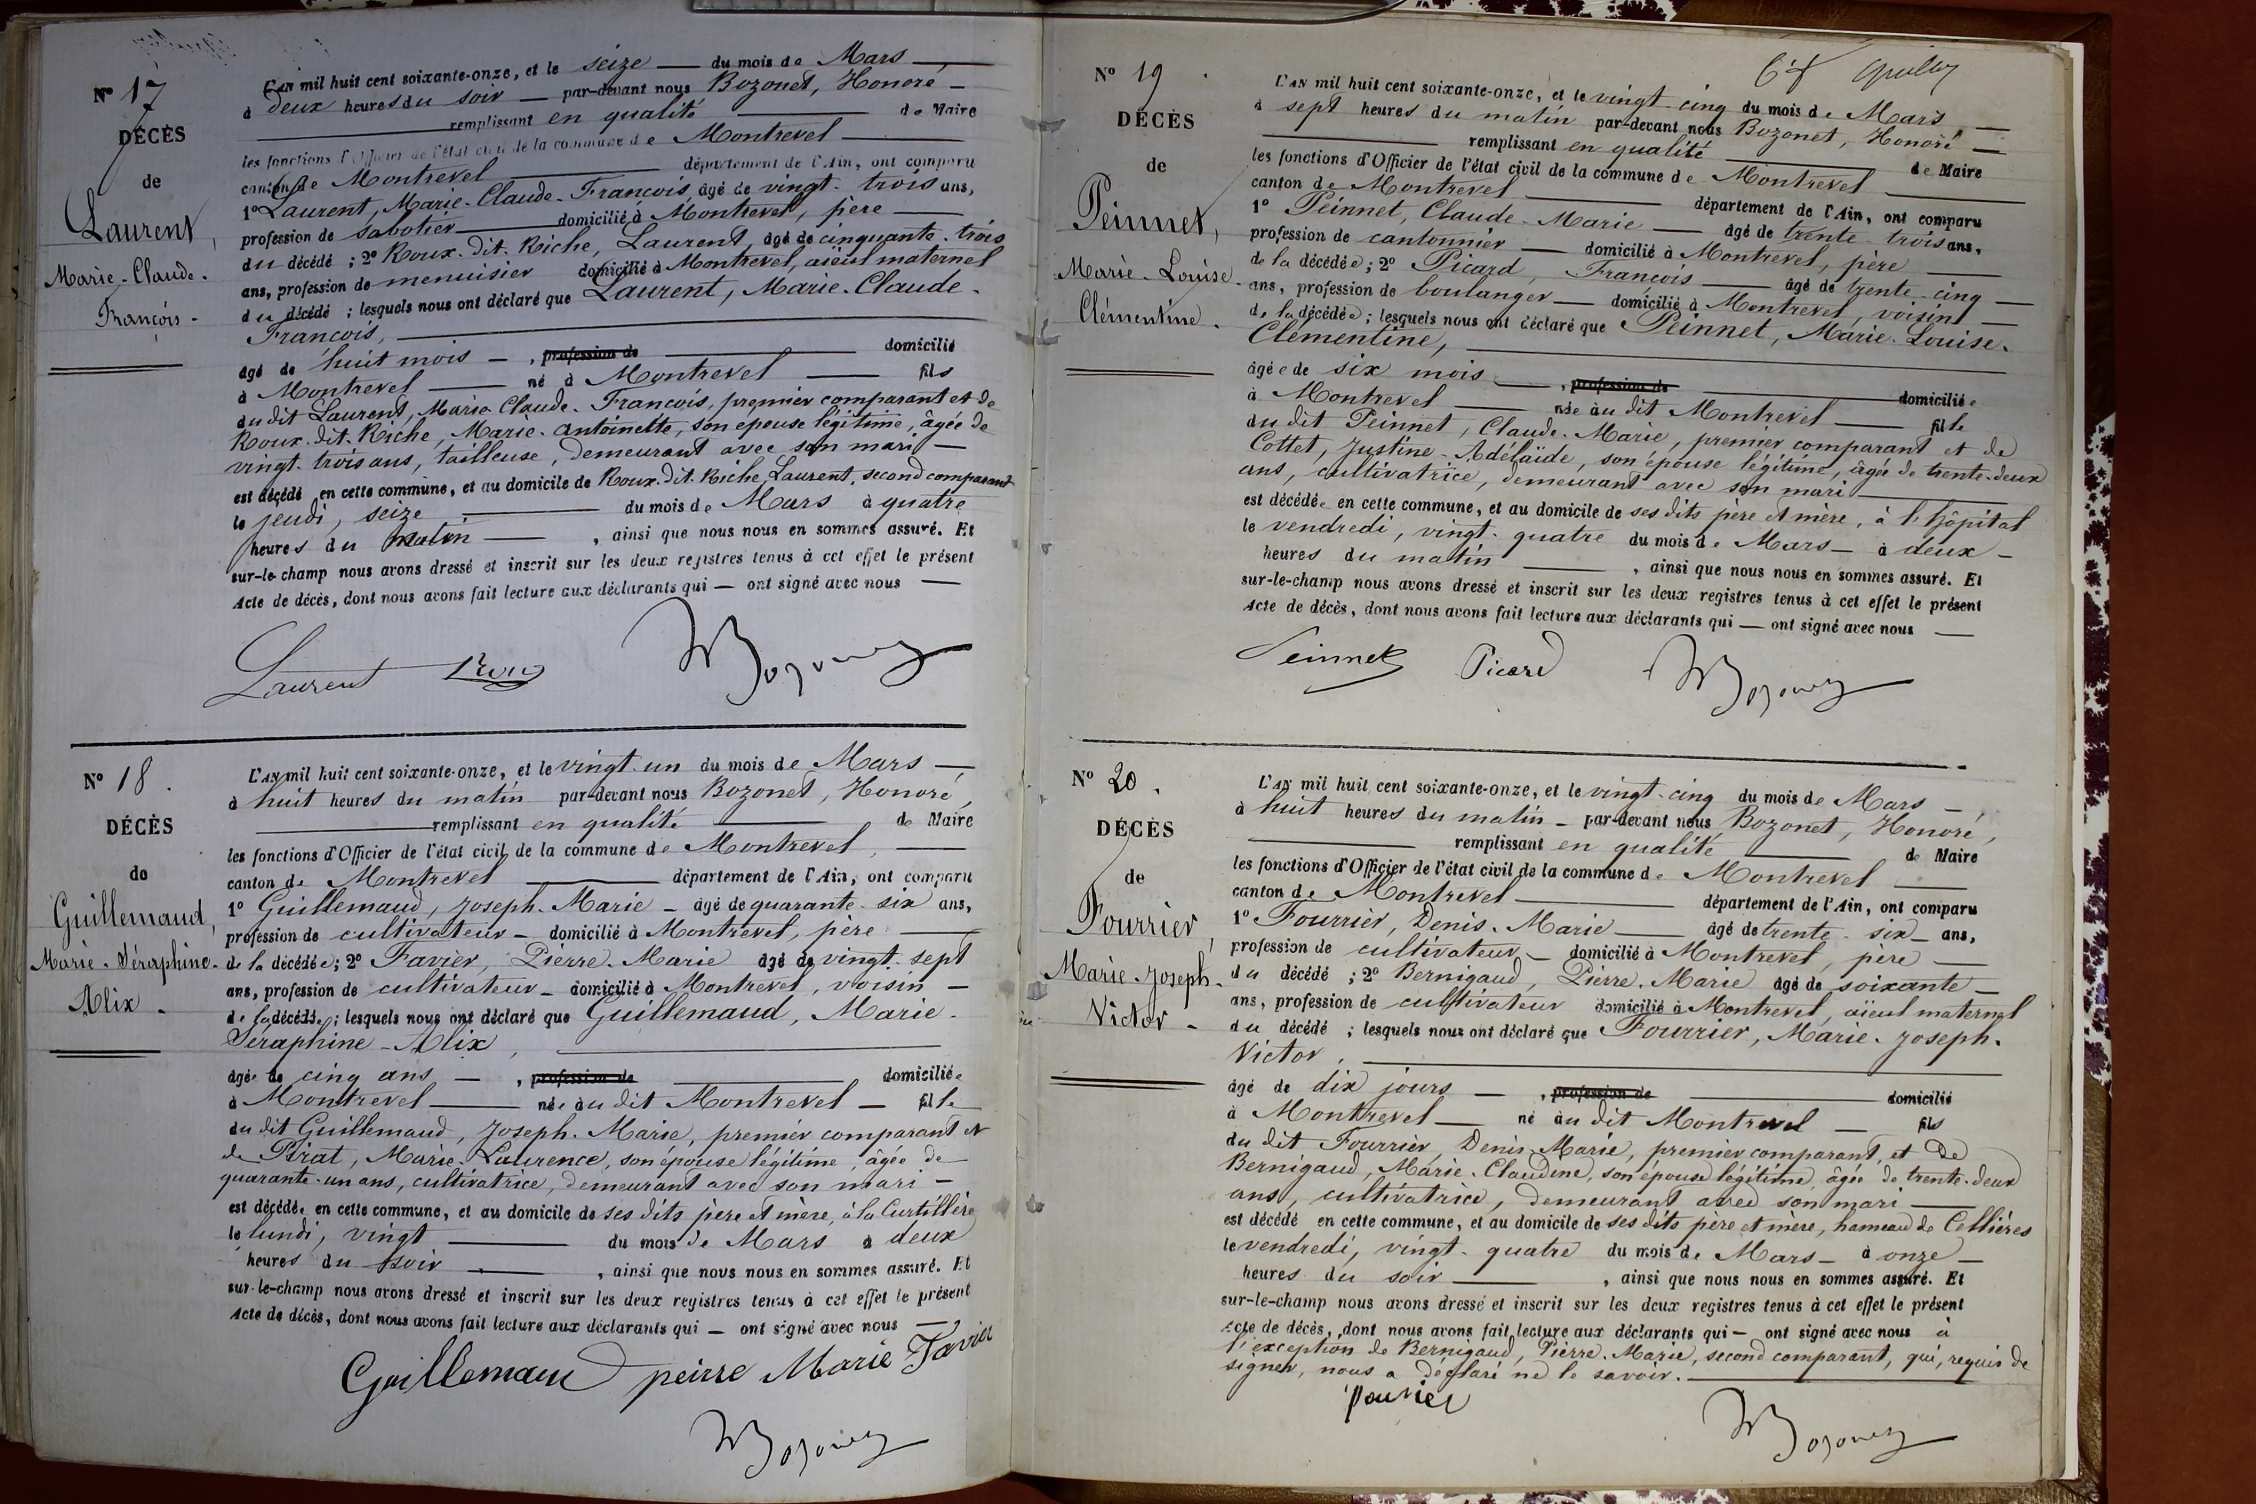 N° 17
DÉCÈS
de
Laurent,
Marie-Claude-
François-
L'AN mil huit cent soixante-onze, et le seize du mois de Mars
à deux heures du soir par-devant nous Bozonet, Honoré
remplissant en qualité de Maire
les fonctions d'Officier de l'état civil de la commune de Montrevel
canton de Montrevel département de l'Ain, ont comparu
1° Laurent, Marie-Claude-François, âgé de vingt-trois ans,
profession de sabotier domicilié à Montrevel, père
du décédé ; 2° Roux-dit-Riche, Laurent, âgé de cinquante-trois
ans, profession de menuisier domicilié à Montrevel, aïeul maternel
du décédé ; lesquels nous ont déclaré que Laurent, Marie-Claude-
François,
âgé de huit mois , profession de domicilié
à Montrevel né à Montrevel fils
du dit Laurent, Marie-Claude-François, premier comparant et de
Roux-dit-Riche, Marie-Antoinette, son épouse légitime, âgée de
vingt-trois ans, tailleuse, demeurant avec son mari
est décédé en cette commune, et au domicile de Roux-dit-Riche, Laurent, second comparant
le jeudi, seize du mois de Mars à quatre
heures du matin , ainsi que nous nous en sommes assuré. Et
sur-le-champ nous avons dressé et inscrit sur les deux registres tenus à cet effet le présent
Acte de décès, dont nous avons fait lecture aux déclarants qui ont signé avec nous
Laurent Roux Bozonet
N° 18.
DÉCÈS
de
Guillemaud,
Marie-Séraphine-
Alix.
L'AN mil huit cent soixante-onze, et le vingt-un du mois de Mars
à huit heures du matin par-devant nous Bozonet, Honoré,
remplissant en qualité de Maire
les fonctions d'Officier de l'état civil de la commune de Montrevel,
canton de Montrevel département de l'Ain, ont comparu
1° Guillemaud, Joseph-Marie âgé de quarante-six ans,
profession de cultivateur domicilié à Montrevel, père
de la décédée ; 2° Favier, Pierre-Marie âgé de vingt-sept
ans, profession de cultivateur domicilié à Montrevel, voisin
de la décédée ; lesquels nous ont déclaré que Guillemaud, Marie-
Séraphine-Alix,
âgée de cinq ans , profession de domiciliée
à Montrevel née au dit Montrevel fille
du dit Guillemaud, Joseph-Marie, premier comparant et
de Pirat, Marie-Laurence, son épouse légitime, âgée de
quarante-un ans, cultivatrice, demeurant avec son mari
est décédée en cette commune, et au domicile de ses dits père et mère, à la Curtillère
le lundi, vingt du mois de Mars à deux
heures du soir , ainsi que nous nous en sommes assuré. Et
sur-le-champ nous avons dressé et inscrit sur les deux registres tenus à cet effet le présent
Acte de décès, dont nous avons fait lecture aux déclarants qui ont signé avec nous
Guillemaud peirre Marie Favier
Bozonet
N° 19.
DÉCÈS
de
Peinnet,
Marie-Louise-
Clémentine.
L'AN mil huit cent soixante-onze, et le vingt-cinq du mois de Mars
à sept heures du matin par-devant nous Bozonet, Honoré
remplissant en qualité de Maire
les fonctions d'Officier de l'état civil de la commune de Montrevel
canton de Montrevel département de l'Ain, ont comparu
1° Peinnet, Claude-Marie âgé de trente-trois ans,
profession de cantonnier domicilié à Montrevel, père
de la décédée ; 2° Picard, François âgé de trente-cinq
ans, profession de boulanger domicilié à Montrevel, voisin
de la décédée ; lesquels nous ont déclaré que Peinnet, Marie-Louise-
Clémentine,
âgée de six mois , profession de domiciliée
à Montrevel née au dit Montrevel fille
du dit Peinnet, Claude-Marie, premier comparant et de
Cottet, Justine-Adélaïde, son épouse légitime, âgée de trente-deux
ans, cultivatrice, demeurant avec son mari
est décédée en cette commune, et au domicile de ses dits père et mère, à l'hôpital
le vendredi, vingt-quatre du mois de Mars à deux
heures du matin , ainsi que nous nous en sommes assuré. Et
sur-le-champ nous avons dressé et inscrit sur les deux registres tenus à cet effet le présent
Acte de décès, dont nous avons fait lecture aux déclarants qui ont signé avec nous
Peinnet Picard Bozonet
N° 20.
DÉCÈS
de
Fourrier,
Marie-Joseph-
Victor-
L'AN mil huit cent soixante-onze, et le vingt-cinq du mois de Mars
à huit heures du matin par-devant nous Bozonet, Honoré,
remplissant en qualité de Maire
les fonctions d'Officier de l'état civil de la commune de Montrevel
canton de Montrevel département de l'Ain, ont comparu
1° Fourrier, Denis-Marie âgé de trente-six ans,
profession de cultivateur domicilié à Montrevel, père
du décédé ; 2° Bernigaud, Pierre-Marie âgé de soixante
ans, profession de cultivateur domicilié à Montrevel, aïeul maternel
du décédé ; lesquels nous ont déclaré que Fourrier, Marie-Joseph-
Victor,
âgé de dix jours , profession de domicilié
à Montrevel né au dit Montrevel fils
du dit Fourrier, Denis-Marie, premier comparant, et de
Bernigaud, Marie-Claudine, son épouse légitime, âgée de trente-deux
ans, cultivatrice, demeurant avec son mari
est décédé en cette commune, et au domicile de ses dits père et mère, hameau de Cellières
le vendredi, vingt-quatre du mois de Mars à onze
heures du soir , ainsi que nous nous en sommes assuré. Et
sur-le-champ nous avons dressé et inscrit sur les deux registres tenus à cet effet le présent
Acte de décès, dont nous avons fait lecture aux déclarants qui ont signé avec nous à
l'exception de Bernigaud, Pierre-Marie, second comparant, qui, requis de
signer, nous a déclaré ne le savoir.
fourrier
Bozonet